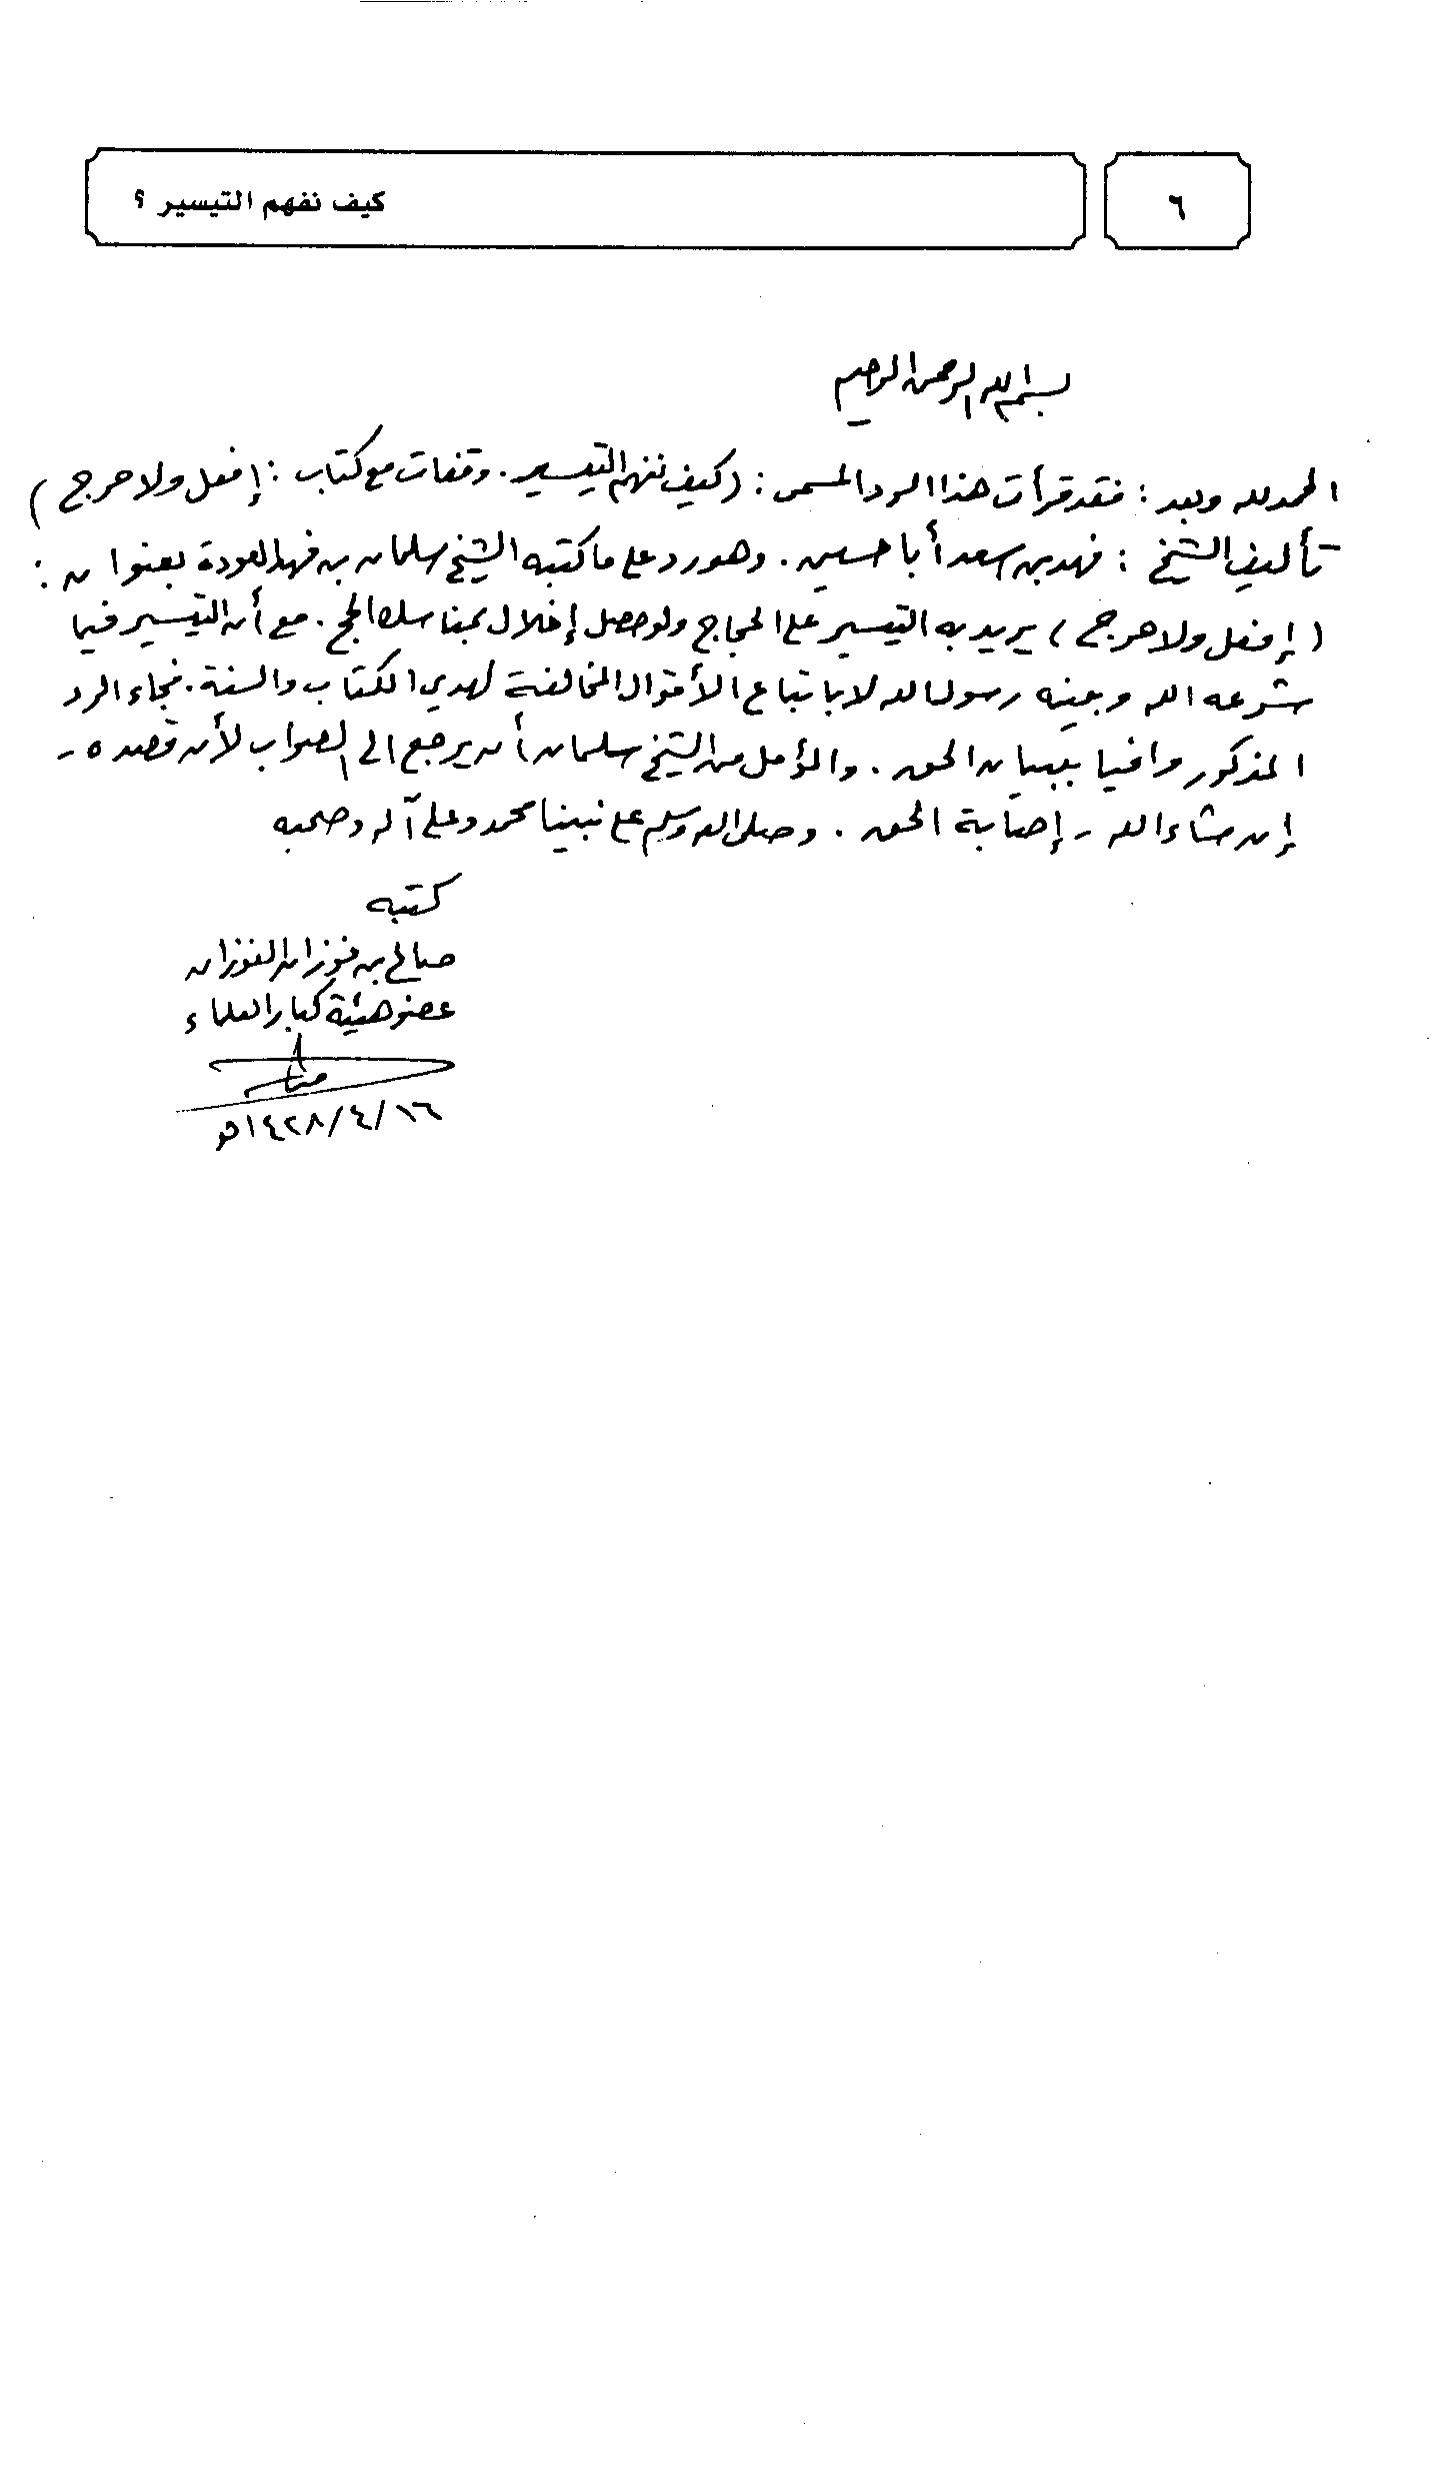 ٦
كيف نفهم التيسير ؟
بسم الله الرحمن الرحيم
الحمد لله وبعد : فقد قرأت هذا الرد المسمى : ( كيف نفهم التيسير . وقفات مع كتاب : إفعل ولا حرج )
تأليف الشيخ : فهد بن سعد أبا حسين . وهو رد على ما كتبه الشيخ سلمان بن فهد العودة بعنوان :
( إفعل ولا حرج ) يريد به التيسير على الحجاج ولو حصل إخلال بمناسك الحج . مع أن التيسير فيما
شرعه الله وبينه رسول الله لا باتباع الأقوال المخالفة لهدي الكتاب والسنة . فجاء الرد
المذكور وافيا ببيان الحق . والمؤمل من الشيخ سلمان أن يرجع الى الصواب لأن قصده -
إن شاء الله - إصابة الحق . وصلى الله وسلم على نبينا محمد وعلى آله وصحبه
كتبه
صالح بن فوزان الفوزان
عضو هيئة كبار العلماء
١٤٢٨/٤/١٦هـ